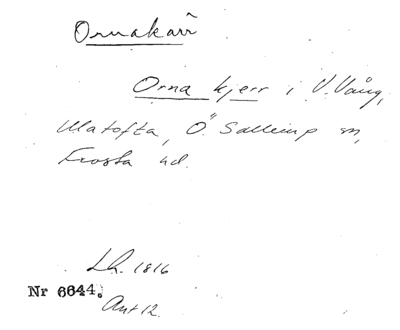 Ornakärr
Orna kjerr i V. Vång,
Matofta, Ö. Sallerup sn,
Frosta hd.
Lh. 1816
Nr 6644.
Akt 12.